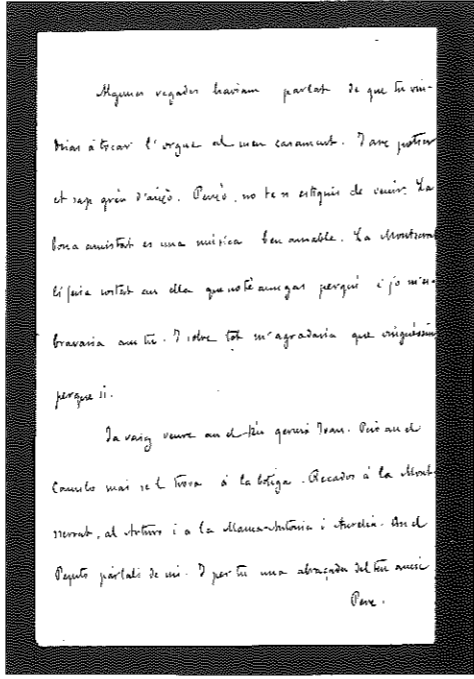 Algunes vegades haviam parlat de que tu vin-
drias á tocar l'orgue al meu casament. I ara potser
et sap greu d'aixó. Peró, no te'n estiguis de venir. La
bona amistat es una música ben amable. La Montserrat
li feria costat an ella que no té amigas perquè i jo m'es-
bravaria am tu. I sobre tot m'agradaria que vinguéssiu
perque si.
Ja vaig veure an el teu germá Joan. Peró an el
Camilo mai se'l troba á la botiga. Recados á la Mont-
serrat, al Arturo i a la Mama-Antonia i Aurelia. An el
Peputo párlali de mi. I per tu una abraçada del teu amic
Pere.